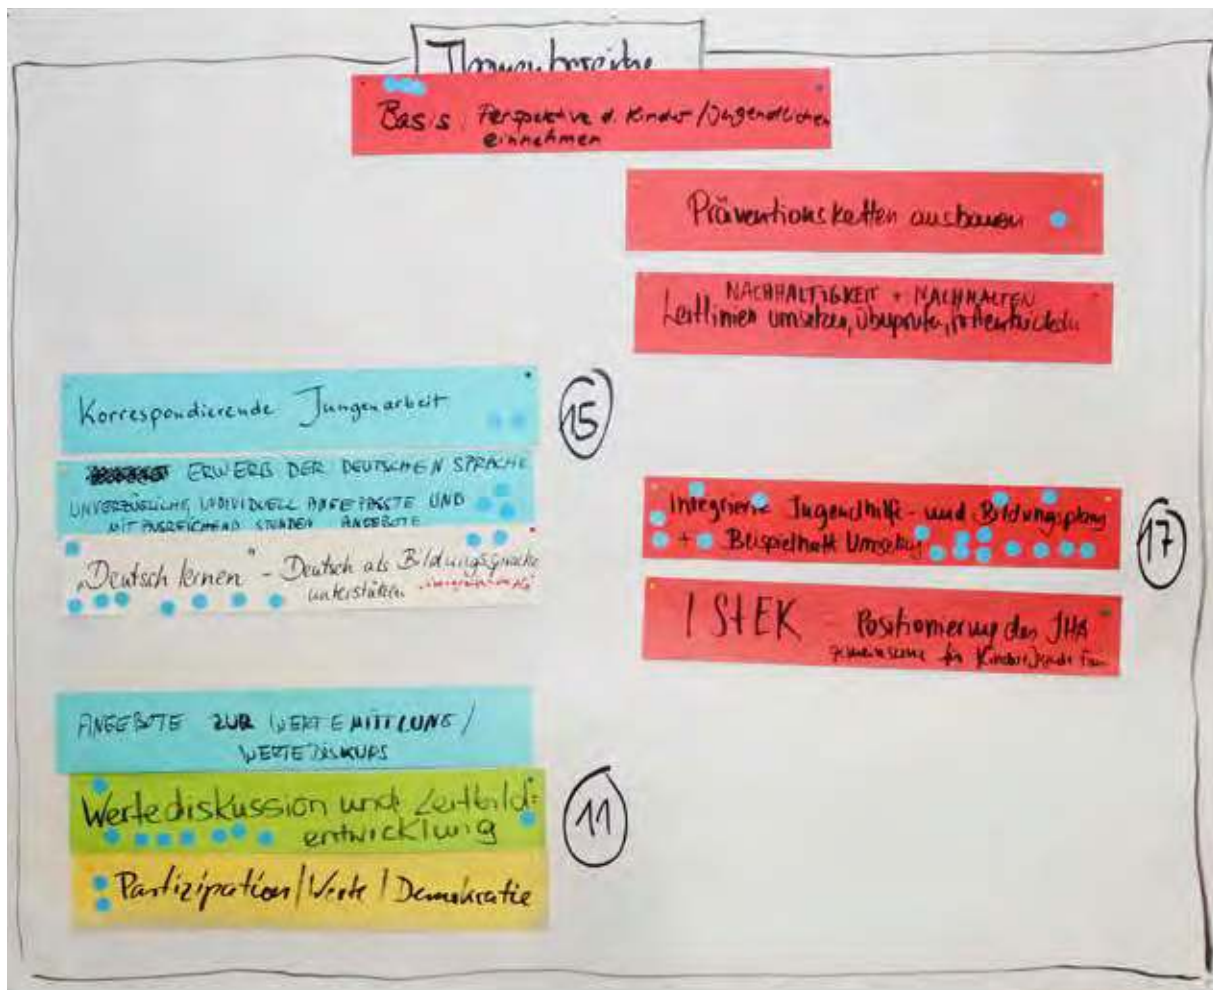 Themenbereiche
Basis: Perspektive d. Kinder/Jugendlichen
einnehmen
Präventionsketten ausbauen
NACHHALTIGKEIT + NACHHALTEN
Leitlinien umsetzen, überprüfen,
Korrespondierende Jungenarbeit
15
ERWERB DER DEUTSCHEN SPRACHE
UNVERZÜGLICHE, INDIVIDUELL ANGEPASSTE UND
MIT AUSREICHEND STUNDEN ANGEBOTE
„Deutsch lernen" - Deutsch als Bildungssprache
unterstützen
Integrierte Jugendhilfe- und Bildungsplang
+ Beispielhaft Umsetzg
17
ISTEK - Positionierung des JHA
gemeinsame für Kinder, Jugend, Fam
ANGEBOTE ZUR WERTEMITTLUNG/
WERTEDISKURS
Wertediskussion und Leitbild-
entwicklung
11
Partizipation/Werte/Demokratie